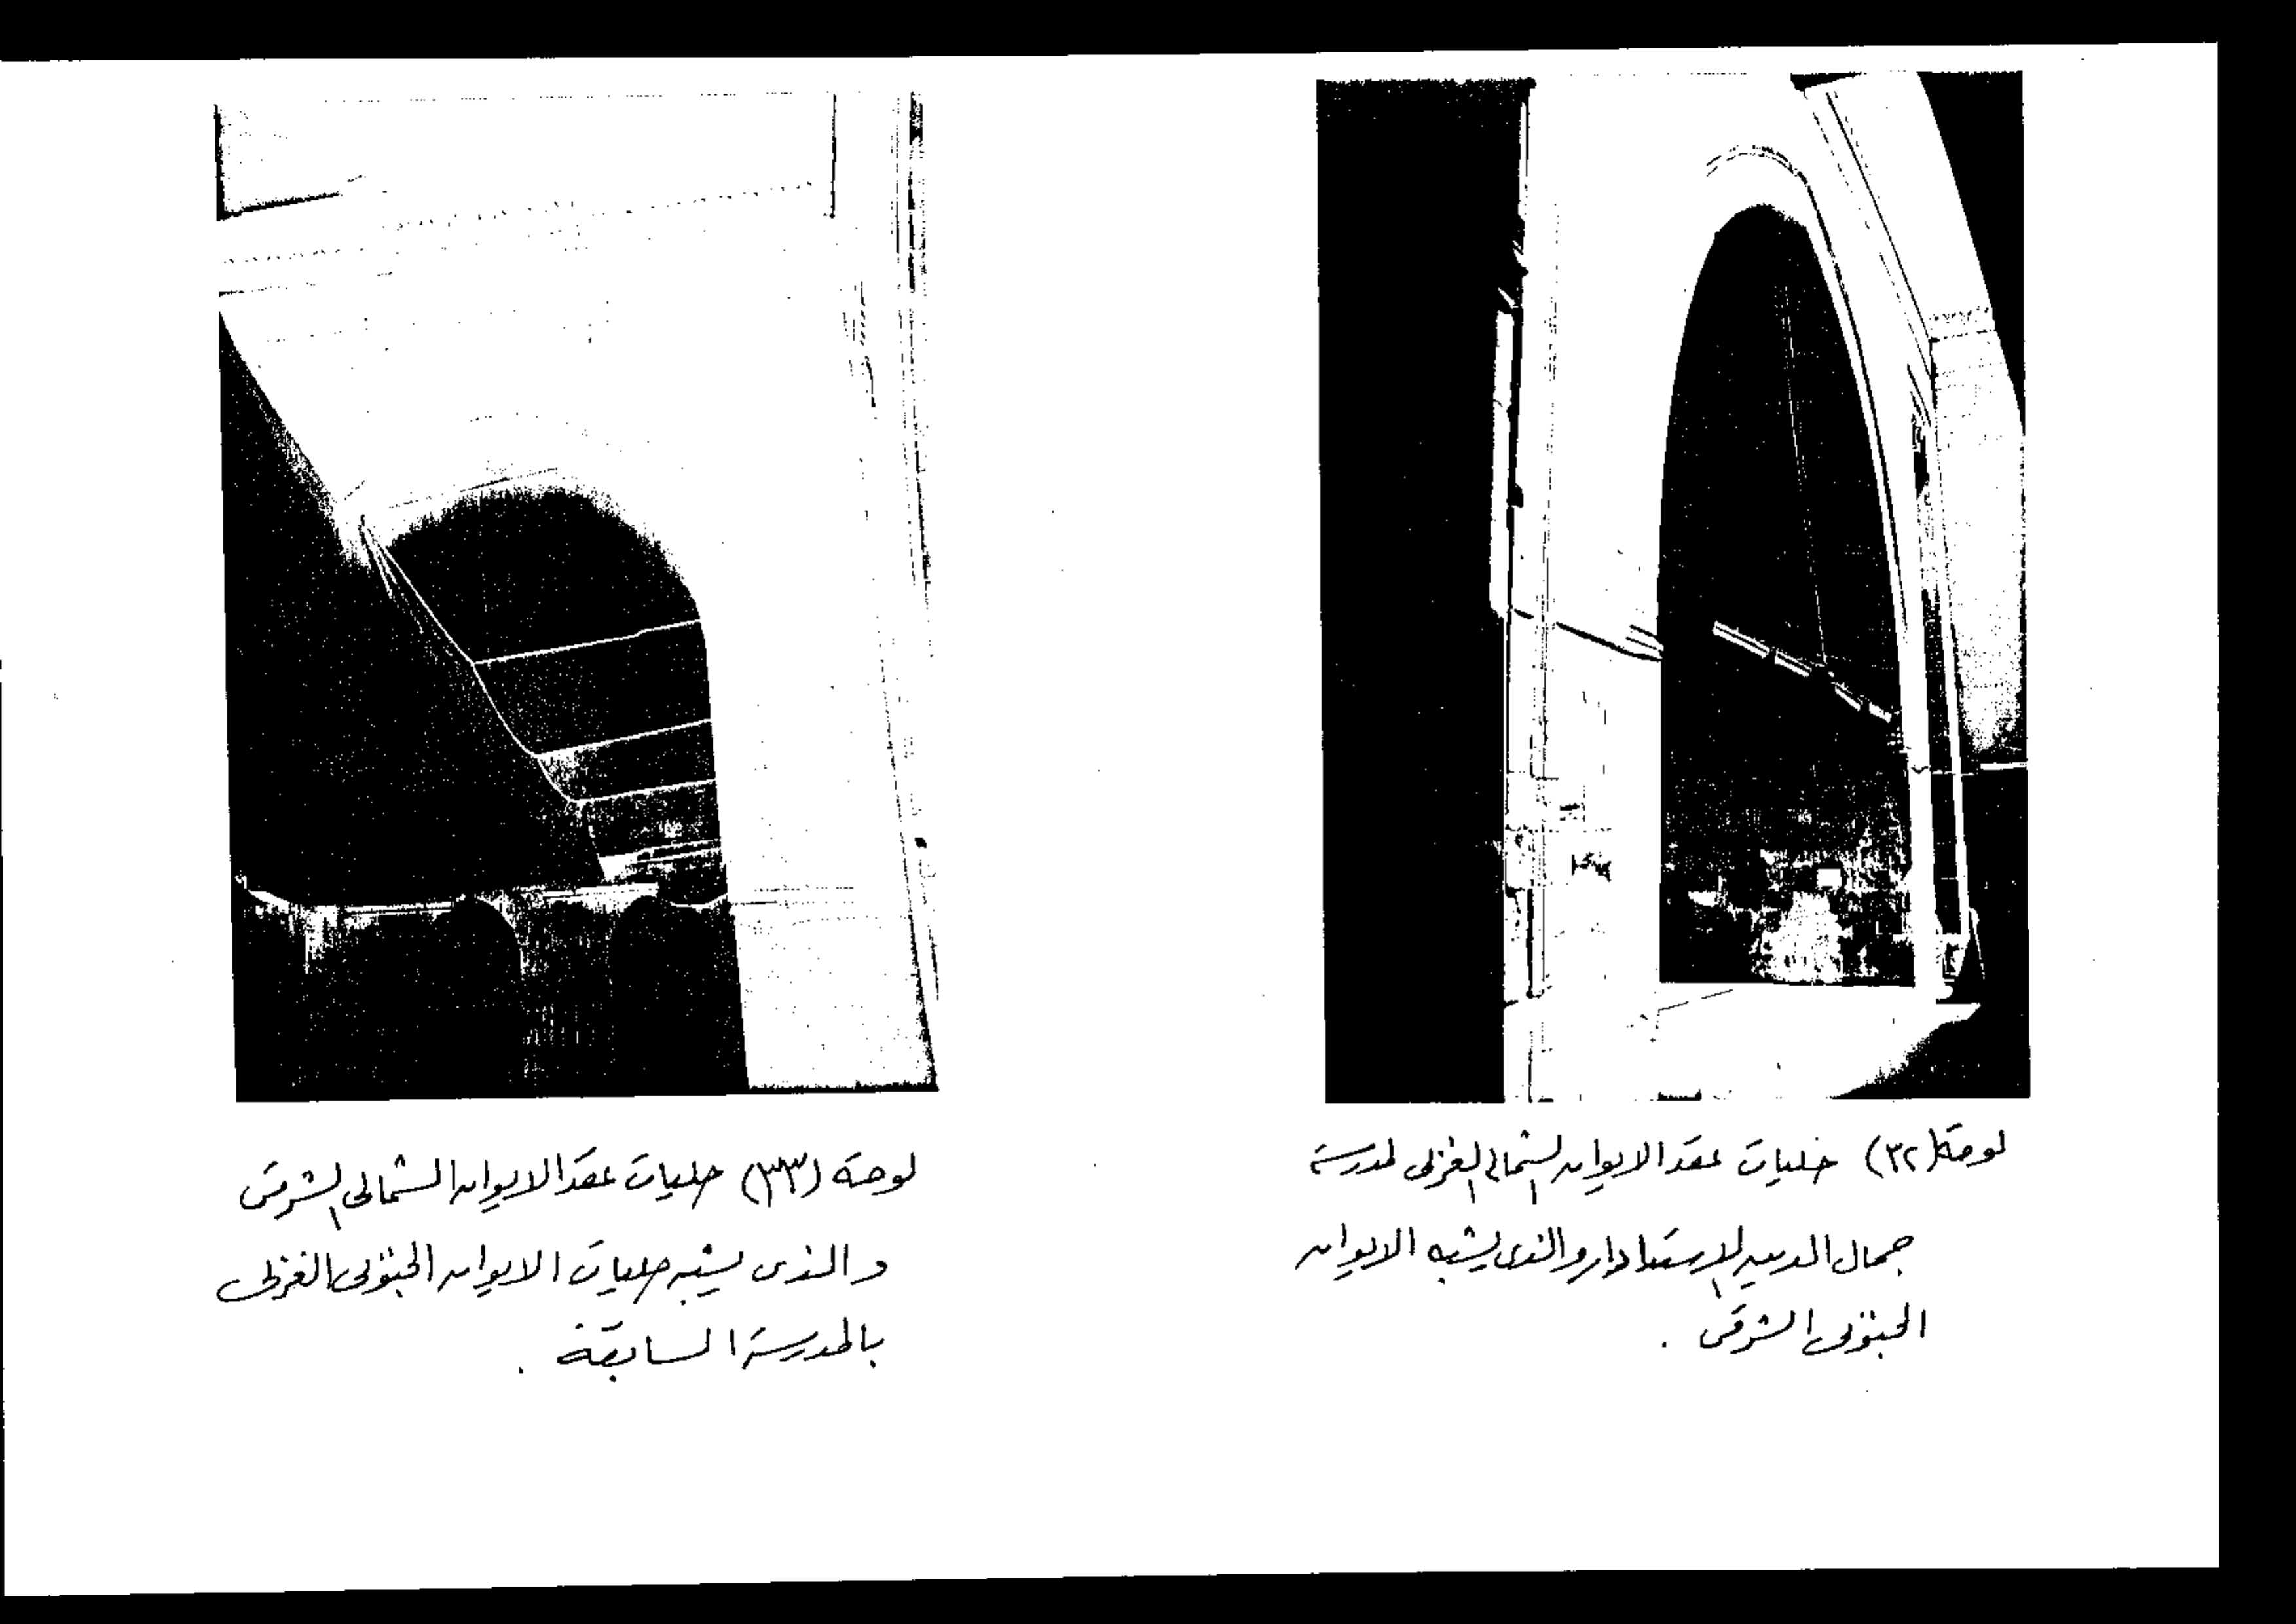 لوحة (٣٢) حليات عقد الايوان الشمالى الغربى لمدرسة
جمال الدين الاستادار والذى يشبه الايوان
الجنوبى الشرقى .
لوحة (٣٣) حليات عقد الايوان الشمالى الشرقى
والذى يشبه حليات الايوان الجنوبى الغربى
بالمدرسة السابقة .